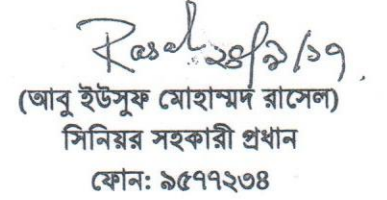 Rasel ২৪/৯/১৭
(আবু ইউসুফ মোহাম্মদ রাসেল)
সিনিয়র সহকারী প্রধান
ফোন: ৯৫৭৭২৩৪